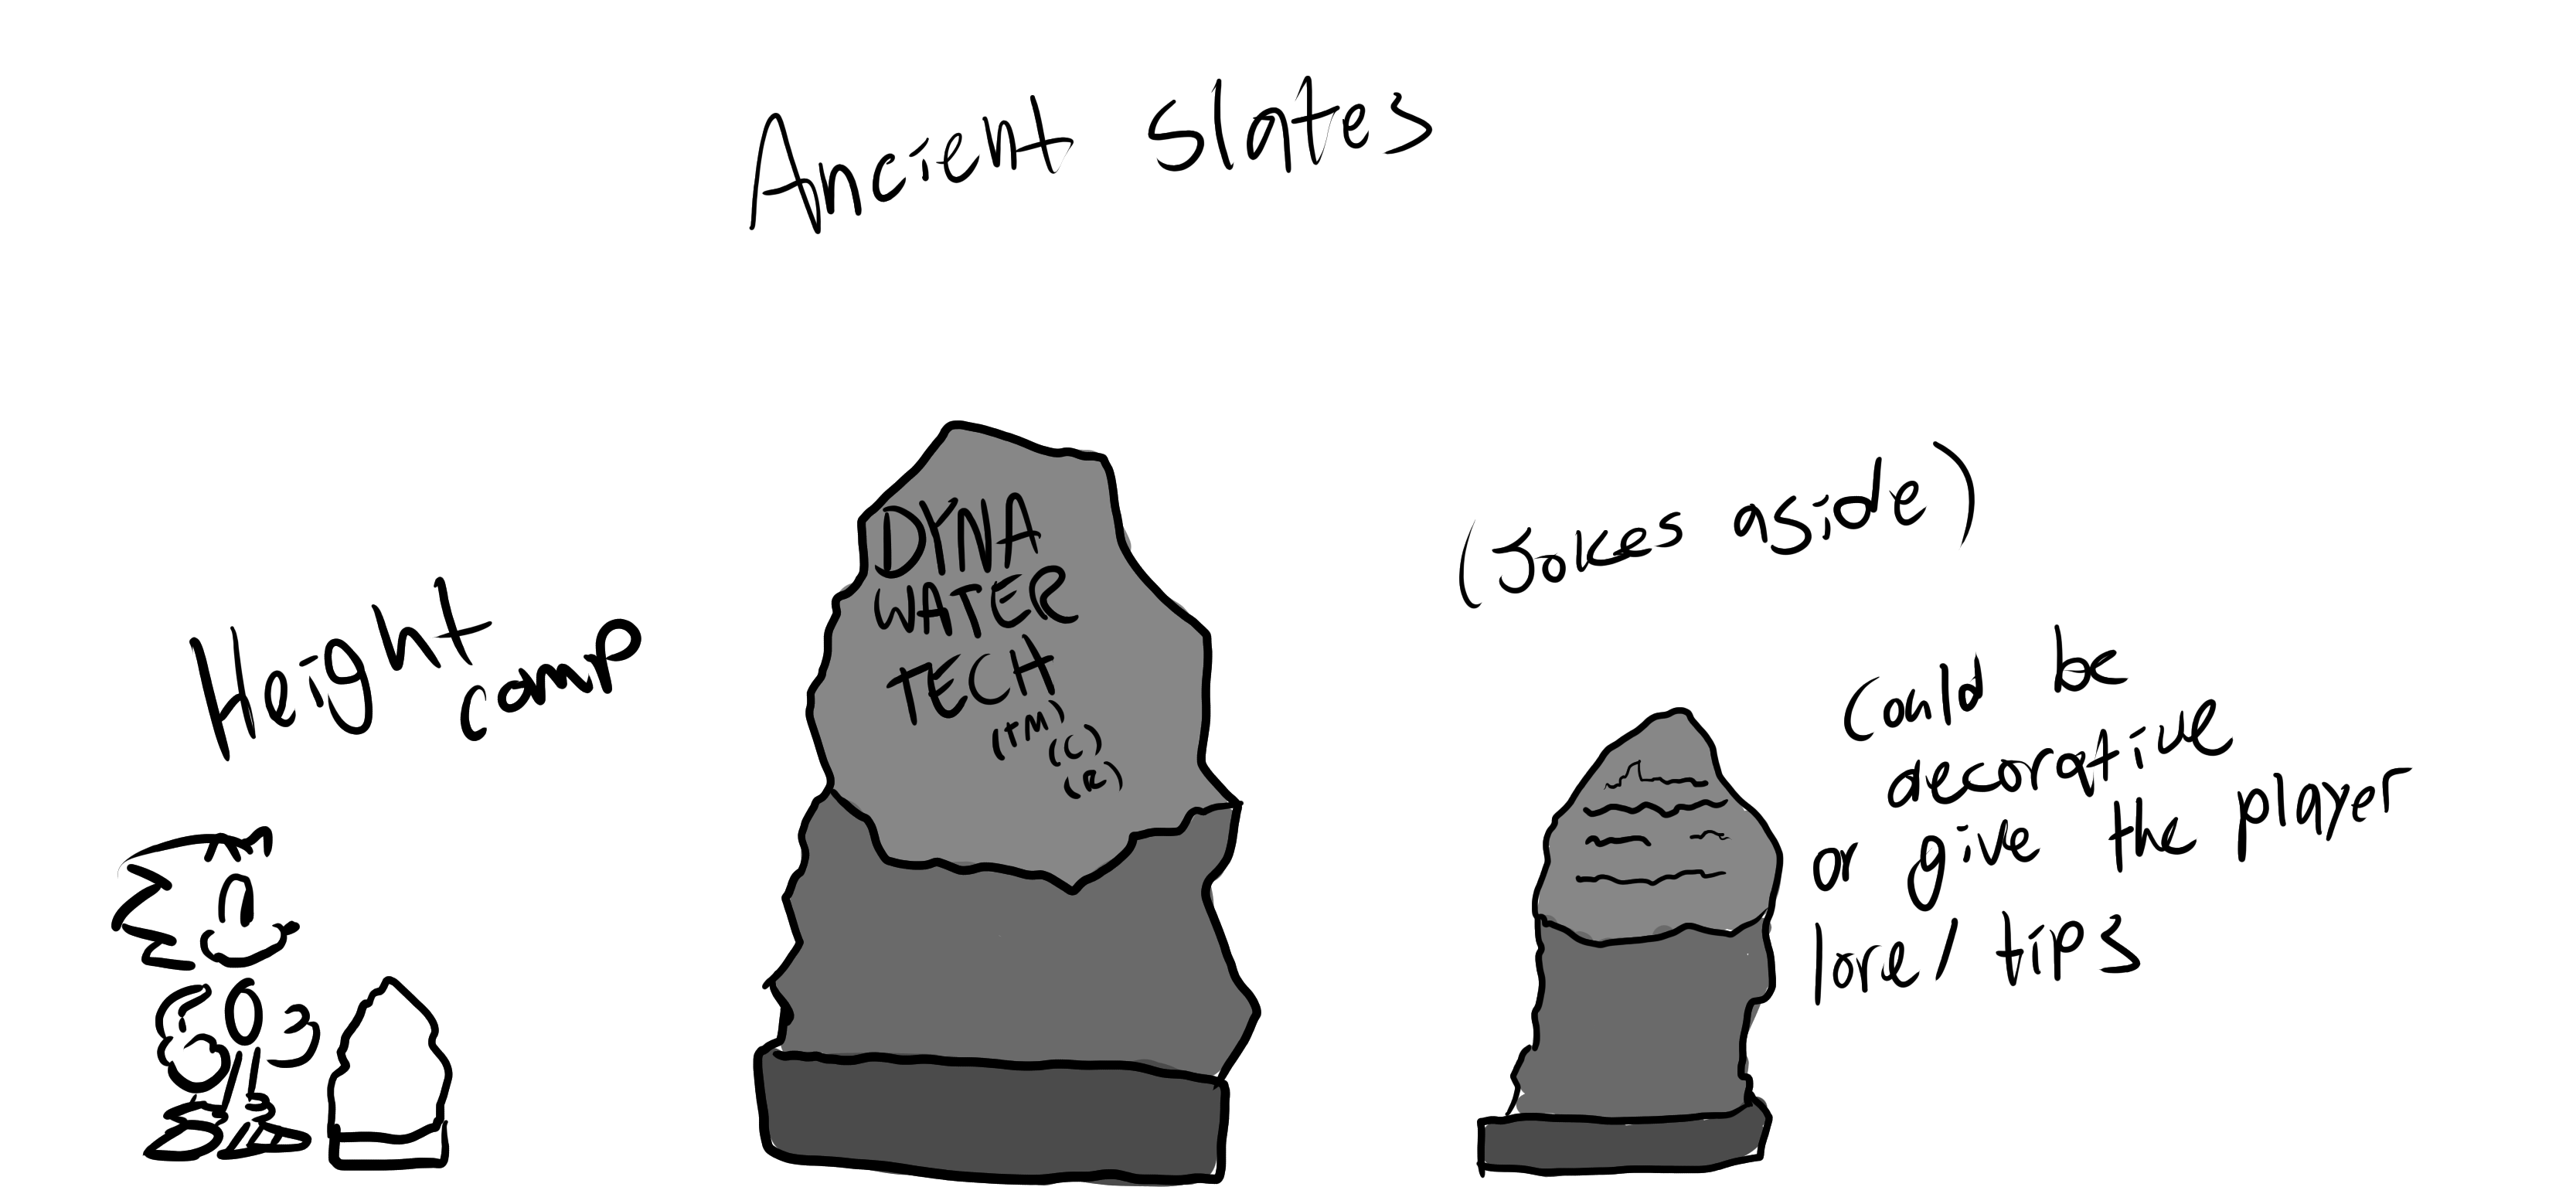 Ancient slates
Height
comp
DYNA
WATER
TECH
(TM)
(C)
(R)
(Jokes aside)
Could be
decorative
or give the player
lore/tips